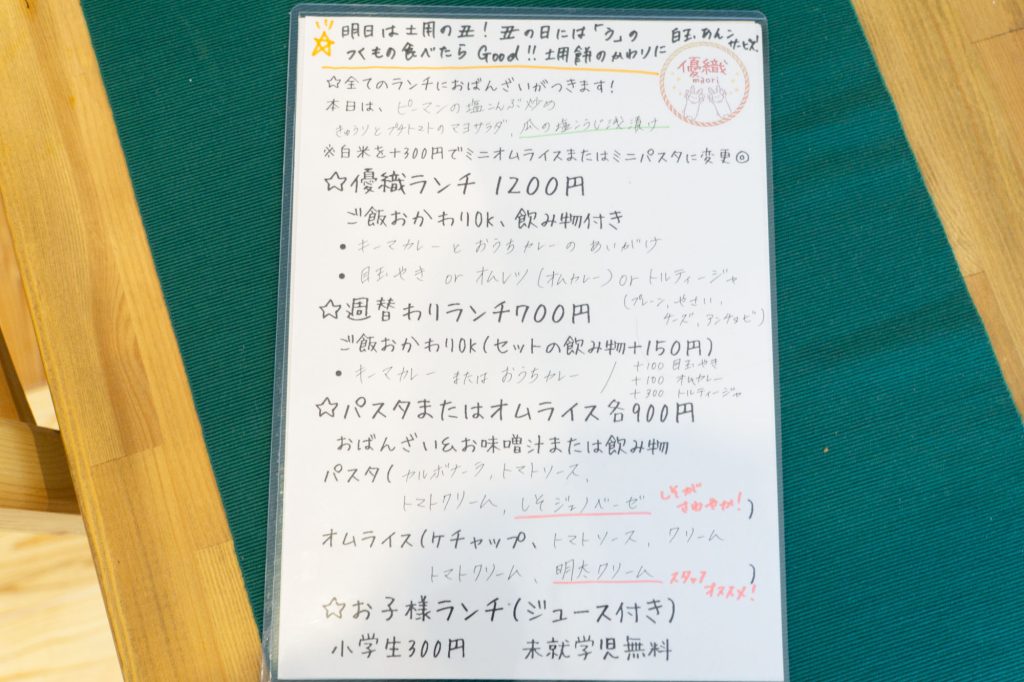 明日は土用の丑！丑の日には「う」の
つくもの食べたら Good!! 土用餅のかわりに
白玉あんこ
サービス！
優織
maori
☆全てのランチにおばんざいがつきます！
本日は、ピーマンの塩こんぶ炒め
きゅうりとプチトマトのマヨサラダ、瓜の塩こうじ浅漬け
※白米を+300円でミニオムライスまたはミニパスタに変更◎
☆優織ランチ 1200円
ご飯おかわりOK、飲み物付き
• キーマカレーとおうちカレーのあいがけ
• 目玉やき or オムレツ(オムカレー) or トルティージャ
(プレーン、やさい、
チーズ、アンチョビ)
☆週替わりランチ700円
ご飯おかわりOK(セットの飲み物+150円)
• キーマカレー または おうちカレー
+100 目玉やき
+100 オムカレー
+300 トルティージャ
☆パスタまたはオムライス各900円
おばんざい&お味噌汁または飲み物
パスタ(カルボナーラ、トマトソース、
トマトクリーム、しそジェノベーゼ しそが
さわやか！)
オムライス(ケチャップ、トマトソース、クリーム
トマトクリーム、明太クリーム スタッフ
オススメ！)
☆お子様ランチ(ジュース付き)
小学生300円 未就学児無料